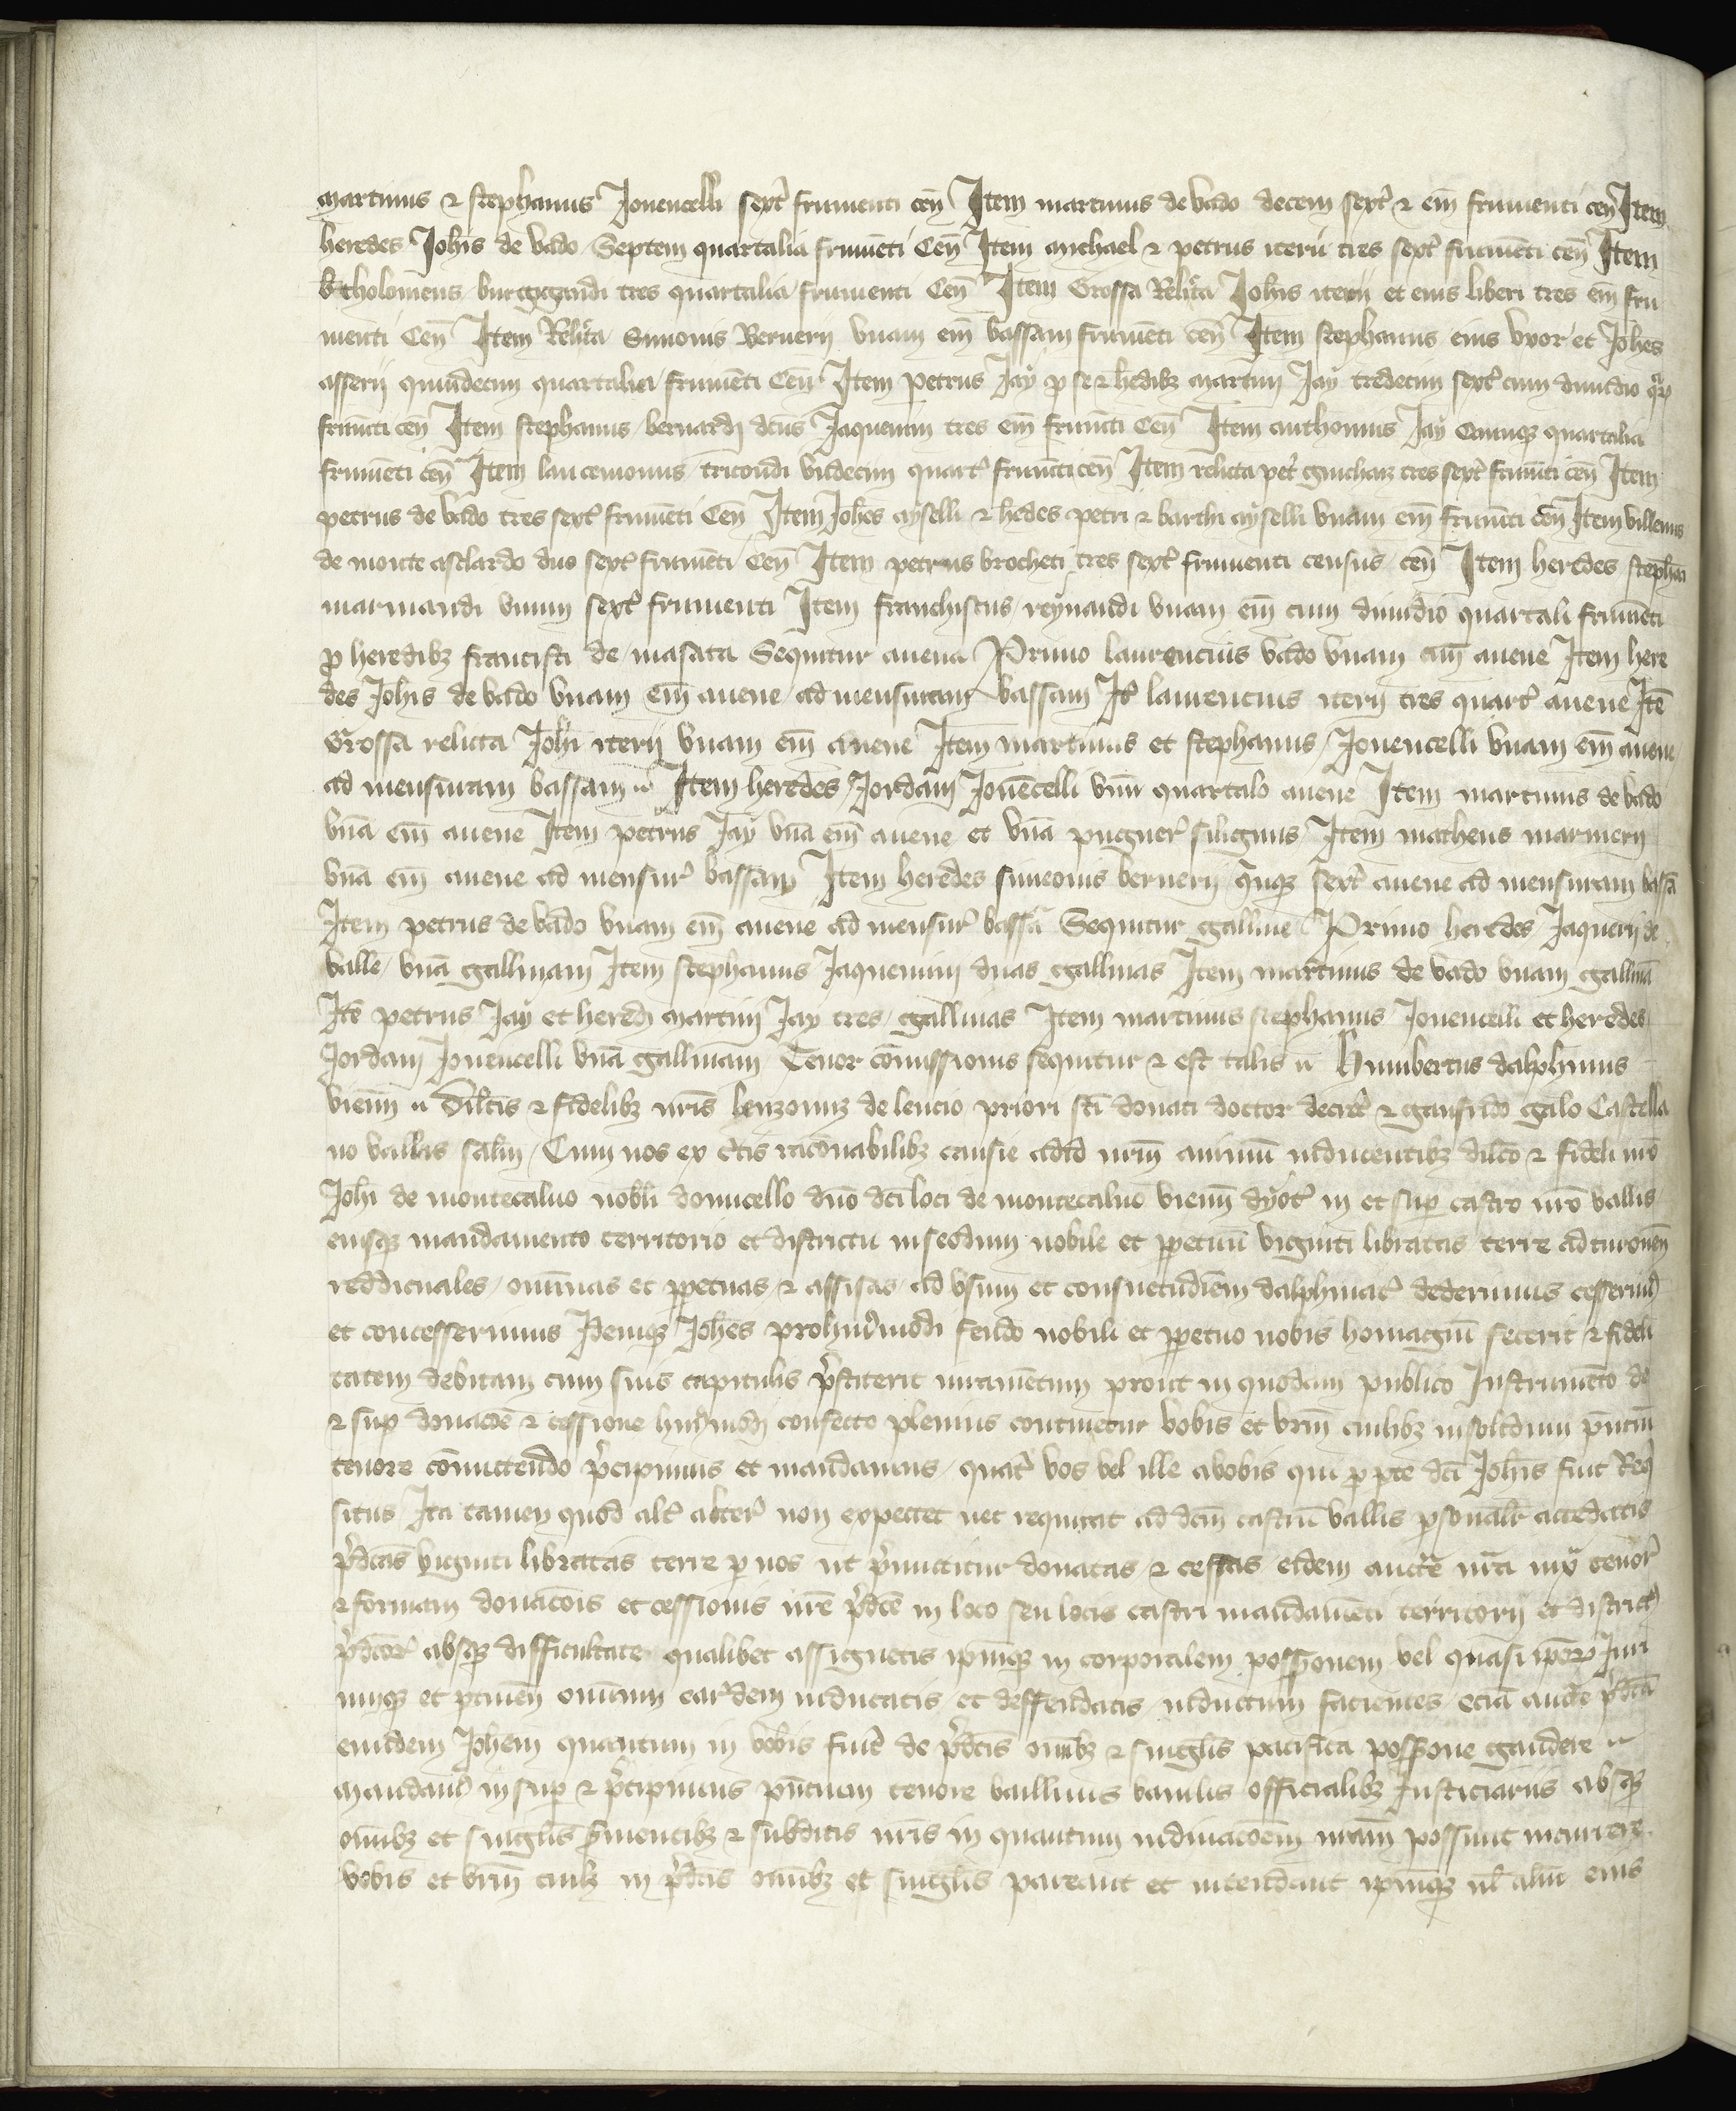 martinus & stephanus Jovencelli sext' frumenti cen̄ Item martinus de vado decem sext' & em̄ frumenti cen̄ Item
heredes Joh̄is de vado Septem quartalia frumēti Cen̄ Item michael & petrus iterii tres sext' frumēti cen̄ Item
btholomeus burgogondi tres quartalia frumenti Cen̄ Item Grossa Relīta Joh̄is iterii et eius liberi tres em̄ fru
menti Cen̄ Item Relīta Simonis Bernerii vnam em̄ bassam frumēti cen̄ Item stephanus eius vxor et Joh̄es
asserii quindecim quartalia frumēti Cen̄ Item petrus Jay p se & hēdibz martini Jay tredecim sext' cum dimidio
frumēti cen̄ Item stephanus bernardi dc̄us Jaquemin tres em̄ frumēti Cen̄ Item anthonius Jay quinqz quartalia
frumēti cen̄ Item vndecim quart' frumēti cen̄ Item relicta pet' guichar tres sext' frumēti cen̄ Item
petrus de vado tres sext' frumēti Cen̄ Item Joh̄es ayselli & h̄edes petri & barth̄i ayselli vnam em̄ frumēti cen̄ Item villenus
de monte asclardo duo sext' frumēti Cen̄ Item petrus brocheti tres sext' frumenti census cen̄ Item heredes stephāi
marmandi vnum sext' frumenti Item franciscus reynaudi vnam em̄ cum dimidio quartali frumēti
p heredibz francisci de masata Sequitur avena Primo laurencius vado vnam em̄ avene Item here
des Joh̄is de vado vnam em̄ avene ad mensuram bassam It' laurencius iterii tres quart' avene Itē
Grossa relicta Joh̄i iterii vnam em̄ avene Item martinus et stephanus Jovencelli vnam em̄ avene
ad mensuram bassam Item heredes Jordani Jovēcelli vnū quartale avene Item martinus de vado
vnā em̄ avene Item petrus Jay vnā em̄ avene et vnā pugner' siliginis Item matheus marinerii
vnā em̄ avene ad mensur' bassam Item heredes simeonis bernerii qnqz sext' avene ad mensuram bassā
Item petrus de vado vnam em̄ avene ad mensur' bassā Sequitur galline Primo heredes Jaquerii de
valle vnā gallinam Item stephanus Jaquemini duas gallinas Item martinus de vado vnam gallinā
Itē petrus Jay et hered̄ martini Jay tres gallinas Item martinus stephanus Jovencelli et heredes
Jordani Jovencelli vnā gallinam Tenor cōmissionis sequitur & est talis Humbertus dalphinus
vienn̄ Dilc̄tis & fidelibz nr̄is de lencio priori sc̄i donati doctor decret' & ganfrido galo Castella
no vallis Cum nos ex c̄tis racōnabilibz causis ad id nr̄m animū inducentibz dilc̄o & fideli nr̄o
Joh̄i de montecalvo nobili domicello dn̄o dc̄i loci de montecalvo vienn̄ dyoc' in et sup castro nr̄o vallis
eiusqz mandamento territorio et districtu in feodum nobile et ppetuū viginti libratas terre ad turonen̄
reddituales omimas et ppetuas & assisas ad vsum et consuetudinem dalphinat' dederimus cesserim'
et concesserimus Idemqz Joh̄es pro hui'modi feudo nobili et ppetuo nobis homagiū fecerit & fideli
tatem debitam cum suis capitulis p̄stiterit iuramētum prout in quodam publico Instrumēto de
& sup donacōe & cessione hui'modi confecto plenius continetur vobis et vr̄m cuilibz insolidum pn̄ciū
tenore cōmittendo p̄cipimus et mandamus quat' vos vel ille a vobis qui p pte dc̄i Joh̄is fuit Req̄
situs Ita tamen quod alt' alter' non expectet nec requirat ad dc̄m castrū vallis psonalit' accedatis
p̄dc̄as viginti libratas terre p nos ut p̄mittitur donatas & cessas eidem auct̄e nr̄a iux' tenor'
& formam donacōis et cessionis nr̄e p̄dc̄e in loco seu locis castri mandamēti territorii et district'
p̄dc̄or' absqz difficultate qualibet assignetis ipmqz in corporalem possessionem vel quasi ipor' Juri
umqz et ptinen̄ omnium earūdem inducatis et deffendatis inductum facientes eciā auct̄e p̄dc̄a
eundem Joh̄em quantum in vobis fuit de p̄dc̄is oīnibz & singlis pacifica possessione gaudere
Mandam' insup & p̄cipimus pn̄cium tenore baillivis officialibz Justiciariis absqz
omībz et singlis & subditis nr̄is in quantum indignacōem nr̄am possunt incurrere
vobis et vr̄m cuilibz in p̄dc̄is omībz et singlis pareant et intendant ipmqz ul' aliū eius